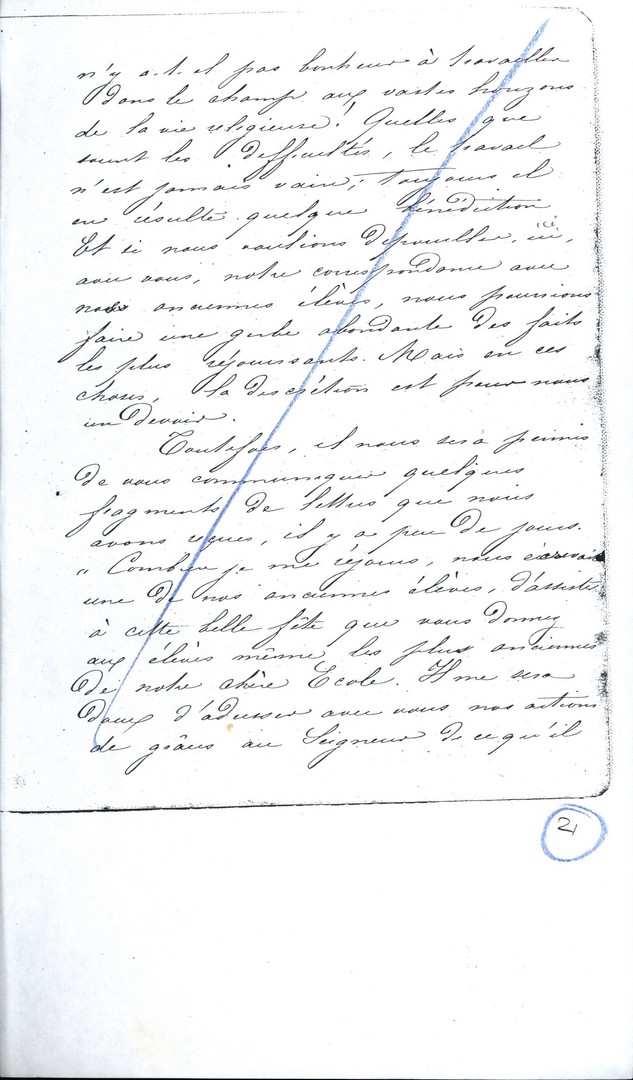 n'y a-t-il pas bonheur à travailler
dans le champ aux vastes horizons
de la vie religieuse! Quelles que
soient les difficultés, le travail
n'est jamais vain; toujours il
en résulte quelque bénédiction
Et si nous voulions dépouiller, ici, ici
avec vous, notre correspondance avec
nos anciennes élèves, nous pourrions
faire une gerbe abondante des faits
les plus réjouissants. Mais en ces
choses, la discrétion est pour nous
un devoir.
Toutefois, il nous sera permis
de vous communiquer quelques
fragments de lettres que nous
avons reçues, il y a peu de jours.
" Combien je me réjouis, nous écrivait
une de nos anciennes élèves, d'assister
à cette belle fête que vous donnez
aux élèves même les plus anciennes
de notre chère Ecole. Il me sera
doux d'adresser avec vous nos actions
de grâces au Seigneur de ce qu'il
2